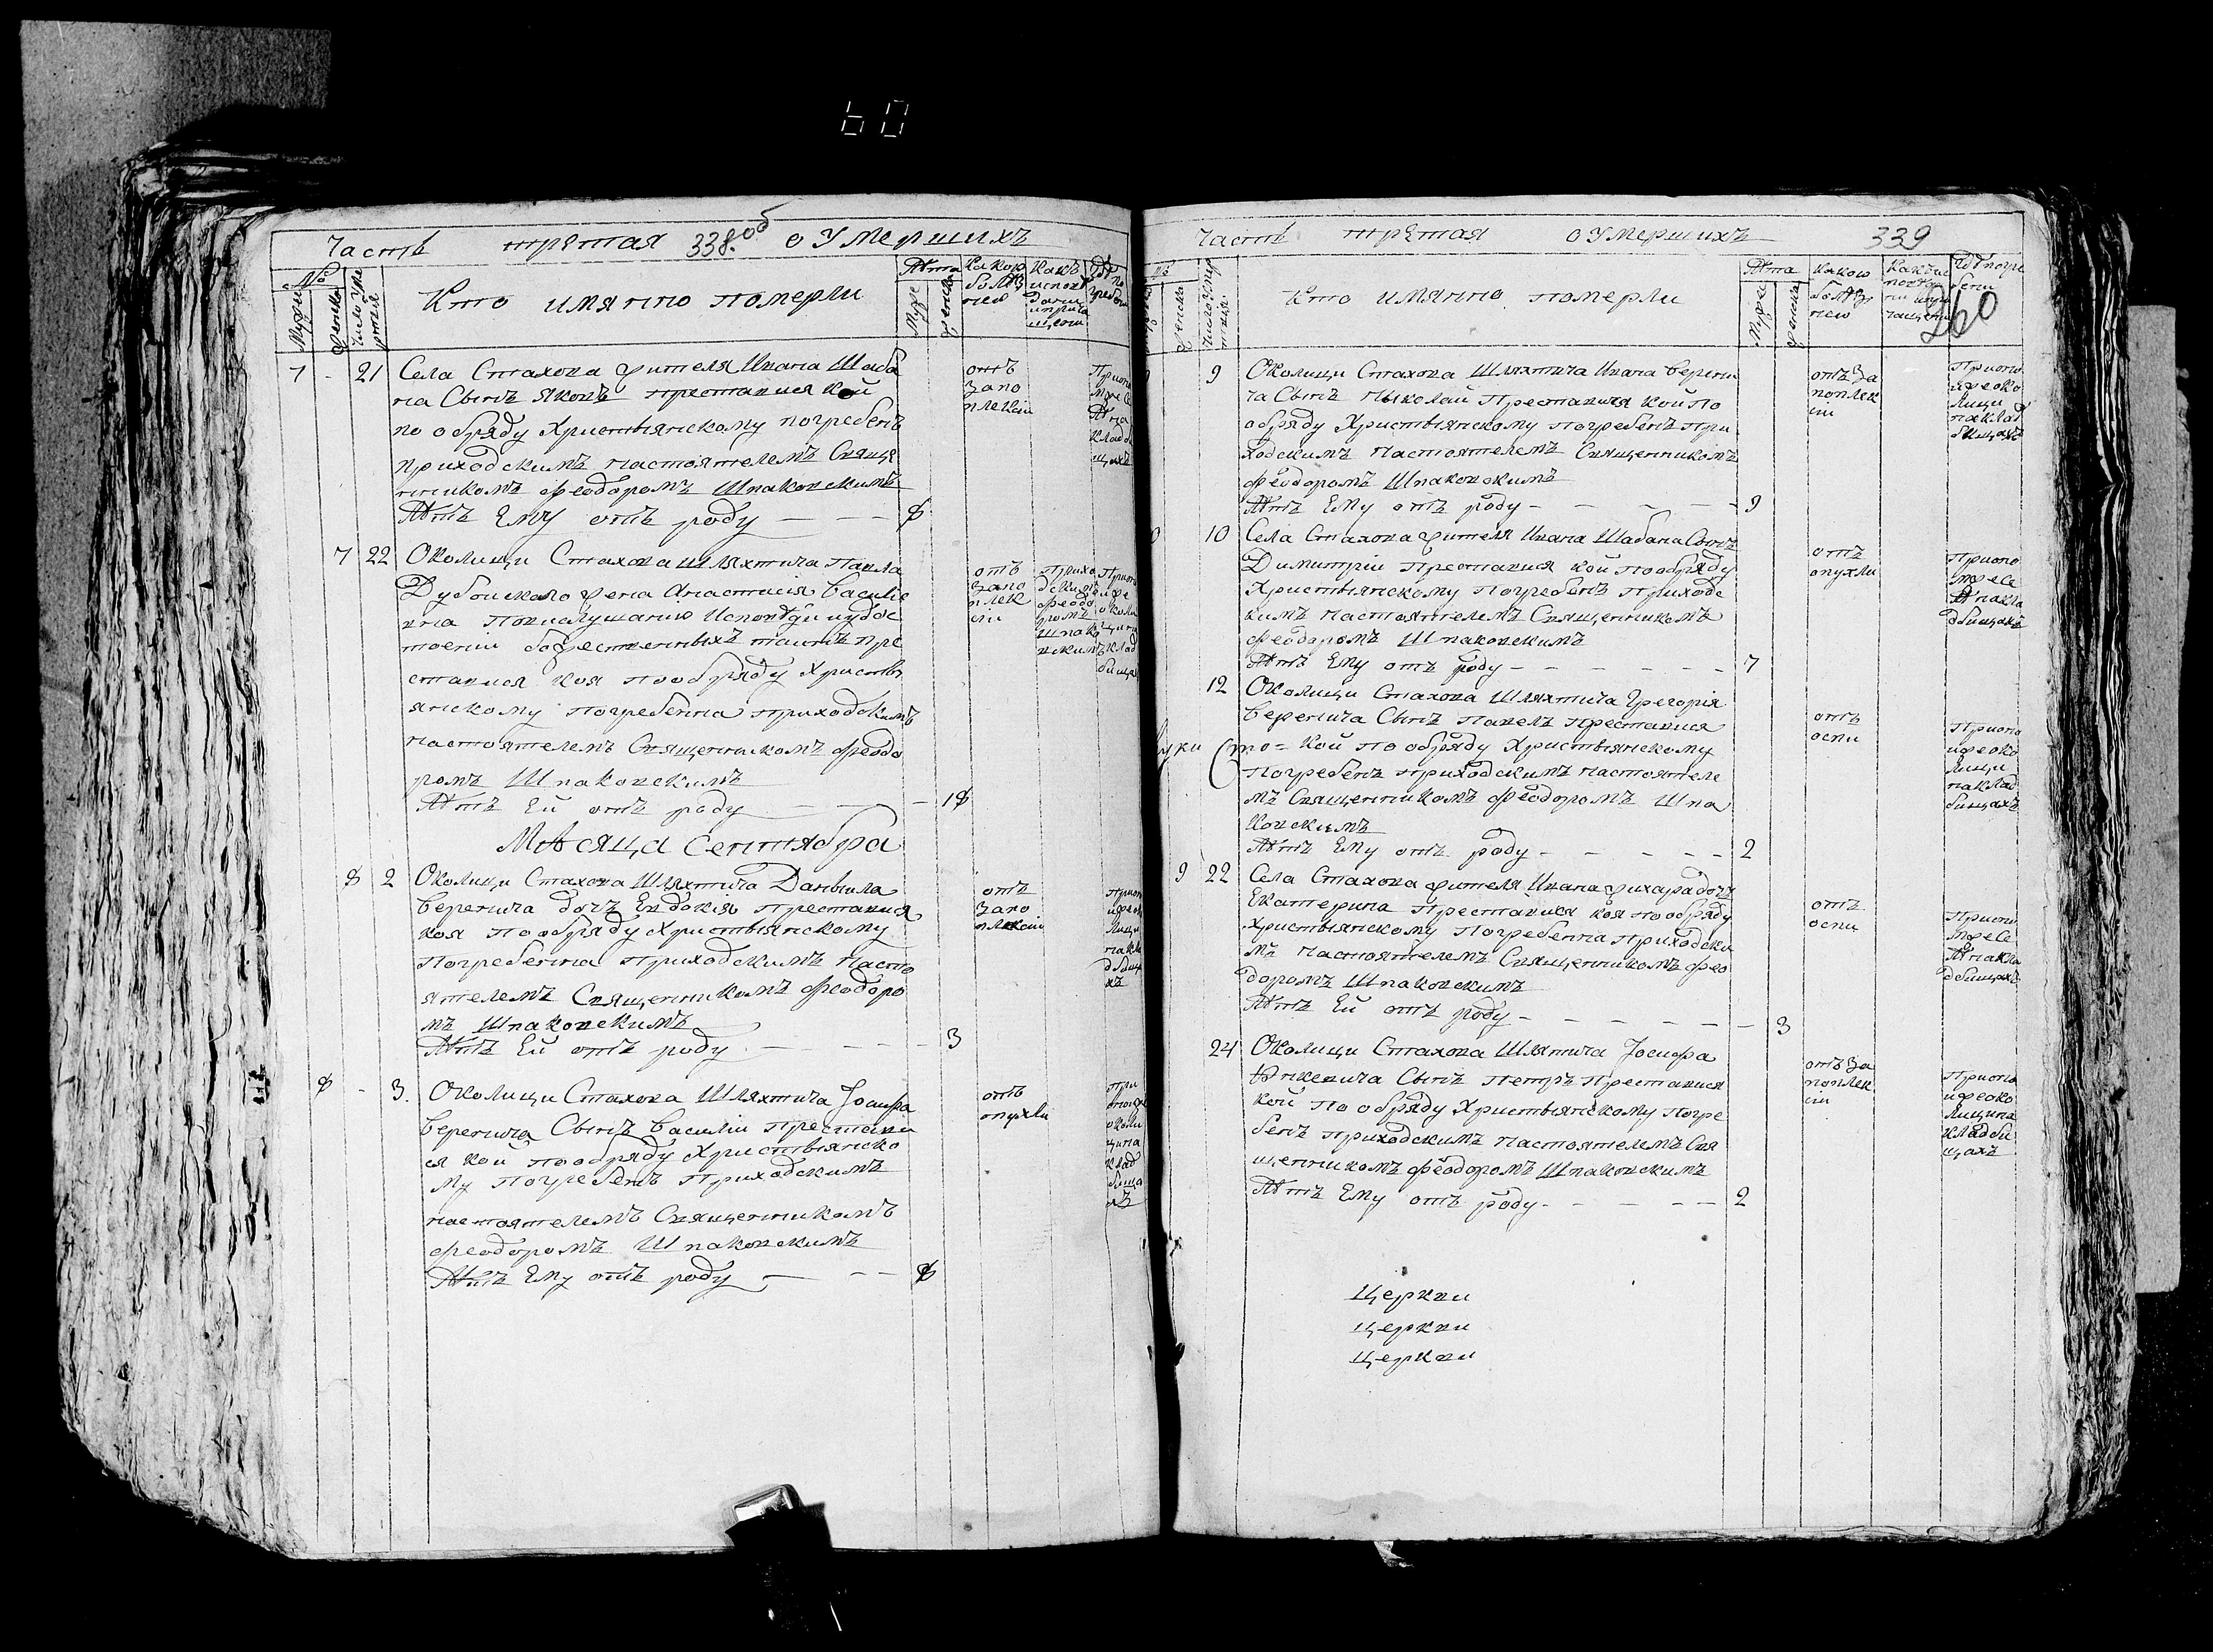 60
Часть третая 338.об о Умершихъ
№ Мужи Женска Число Уме ртвія Кто имянно померли Лѣта Муже Женска Какою болѣз нею Какъ исповѣ дани и прича щени Гдѣ по гребени
7 - 21 Села Стахова жителя Ивана Шаба
на Сынъ Яковъ преставися кой
по обряду Христыянскому погребенъ
приходскимъ настоятелемъ Свяще
нникомъ Феодоромъ Шпаковскимъ
Лѣтъ Ему отъ роду — — — 8
отъ
запо
плекіи
7 22 Околицы Стахова шляхтича Павла
Дубойского жена Анастасія Василіе
вна По выслушанію Исповѣди и удос
тоеніи божественныхъ таинъ пре
ставися коя по обряду Христы
янскому погребенна приходскимъ
настоятелемъ Священникомъ Феодо
ромъ Шпаковскимъ
Лѣтъ Ей отъ роду — — — 18
отъ
запо
плек
сіи
прихо
дскимъ
Феодо
ромъ
Шпако
вскимъ
Мѣсяца Сентября
8 2 Околицы Стахова Шляхтича Даныила
Веренича дочъ Евдокія преставися
коя по обряду Христыянскому
погребенна приходскимъ насто
ятелемъ Священникомъ Феодоро
мъ Шпаковскимъ
Лѣтъ Ей отъ роду — — — 3
отъ
запо
плексіи
8 - 3. Околицы Стахова Шляхтича Іосифа
Веренича Сынъ Василій Престави
ся кой по обряду Христыянско
му погребенъ Приходскимъ
настоятелемъ Священникомъ
Феодоромъ Шпаковскимъ
Лѣтъ Ему отъ роду — — — 8
отъ
опухли
Часть третая о Умершихъ 339
Женска Кто имянно померли Лѣта Мужеи Женска какою болѣз нею Гдѣ погре бени
260
9 Околицы Стахова Шляхтича Ивана Верени
ча Сынъ Ныколай Преставися кой по
обряду Христыянскому погребенъ при
ходскимъ настоятелемъ Священникомъ
Феодоромъ Шпаковскимъ
Лѣтъ Ему отъ роду - — — — 9
отъ за
поплек
сіи
При опой
же око
лицы
на клад
бищахъ
10 Села Стахова жителя Ивана Шабана Сынъ
Димитрій преставися кой по обряду
Христыянскому погребенъ Приходс
кимъ настоятелемъ Священникомъ
Феодоромъ Шпаковскимъ
Лѣтъ Ему отъ роду — — — — 7
отъ
опухли
При опо
мже се
лѣ на кла
дбищахъ
12 Околицы Стахова Шляхтича Грегорія
Веренича Сынъ Павелъ преставися
кой по обряду Христыянскому
погребенъ приходскимъ настоятеле
мъ Священникомъ Феодоромъ Шпа
ковскимъ
Лѣтъ Ему отъ роду — — — — 2
отъ
оспи
При опо
йже око
лицы
на клад
бищахъ
9 22 Села Стахова жителя Ивана Жихара дочъ
Екатерина преставися коя по обряду
Христыянскому погребенна приходски
мъ настоятелемъ Священникомъ Фео
доромъ Шпаковскимъ
Лѣтъ Ей отъ роду — — — — 3
отъ
оспи
При опо
мже се
лѣ на кла
дбищахъ
24 Околицы Стахова Шлятича Іосифа
Сынъ Петръ преставися
кой по обряду Христыянскому погре
бенъ приходскимъ настоятелемъ Свя
щенникомъ Феодоромъ Шпаковскимъ
Лѣтъ Ему отъ роду — — — — 2
отъ за
поплек
сіи
При опо
йже око
лицы на
кладби
щахъ
Церкви
церкви
церкви